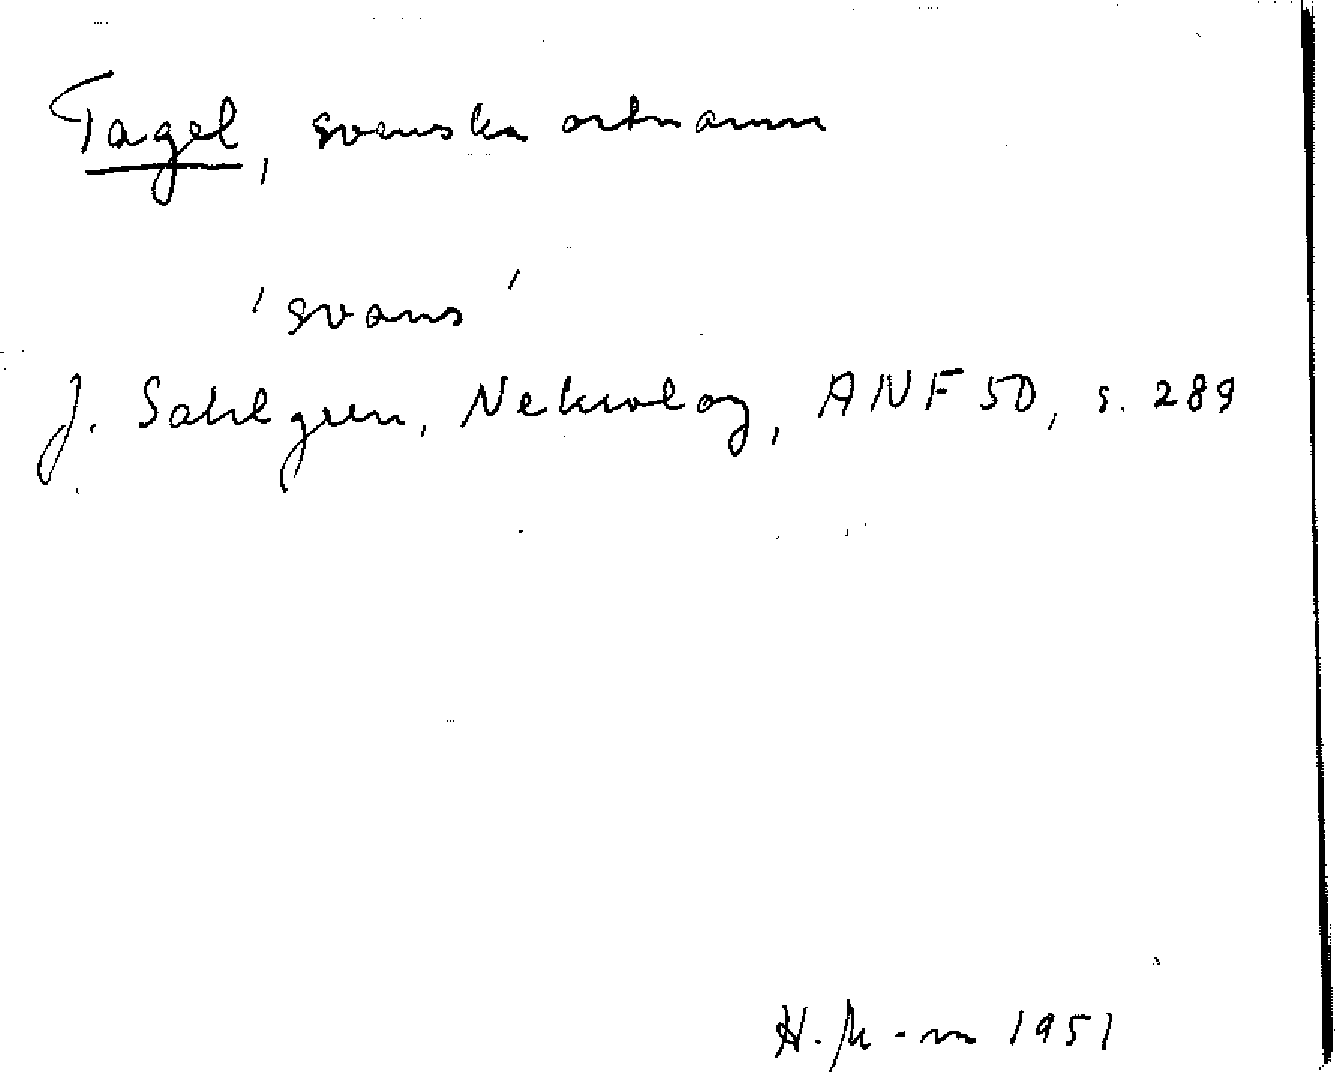 Tagel, svenska ortnamn
'svans'
J. Sahlgren, Nekrolog, ANF 50, s. 289
H. M-m 1951